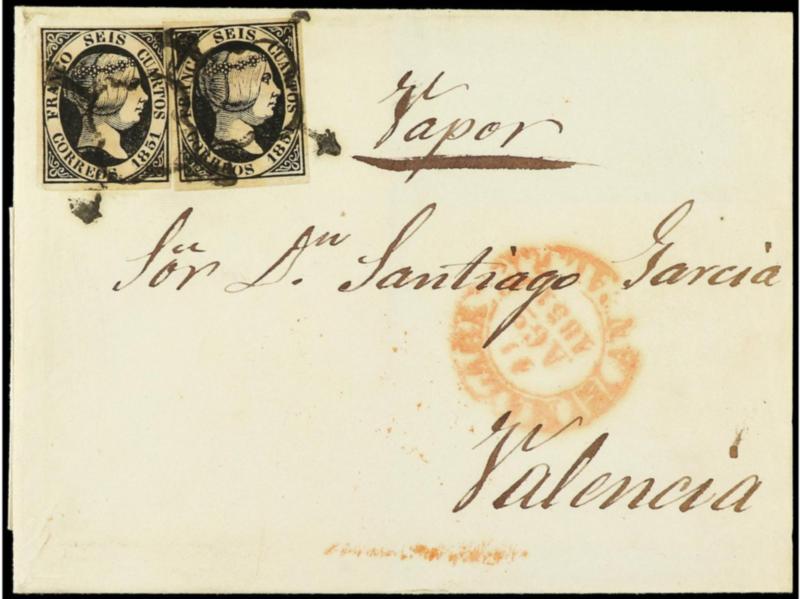 FRANCO SEIS CUARTOS
CORREOS 1851
FRANCO SEIS CUARTOS
CORREOS 1851
Vapor
Sör Dn Santiago Garcia
Valencia